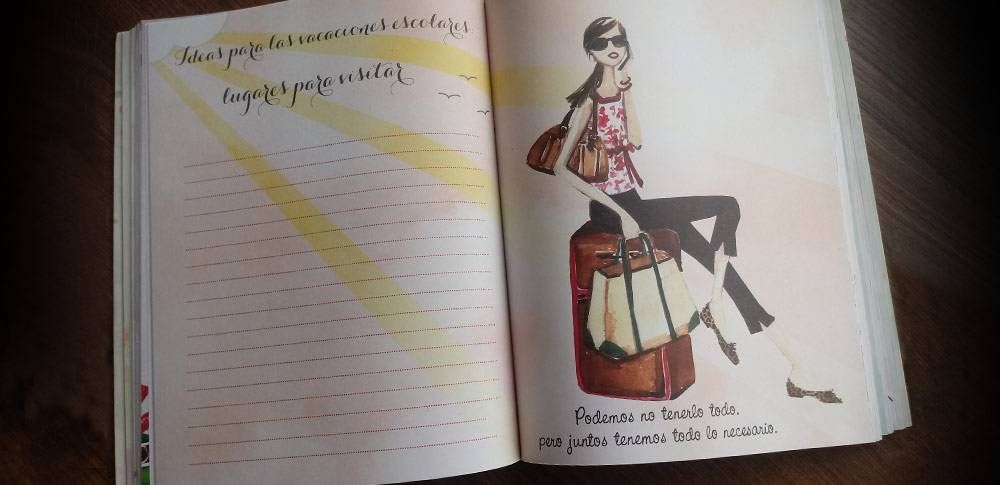 Ideas para las vacaciones escolares
lugares para visitar
Podemos no tenerlo todo,
pero juntos tenemos todo lo necesario.